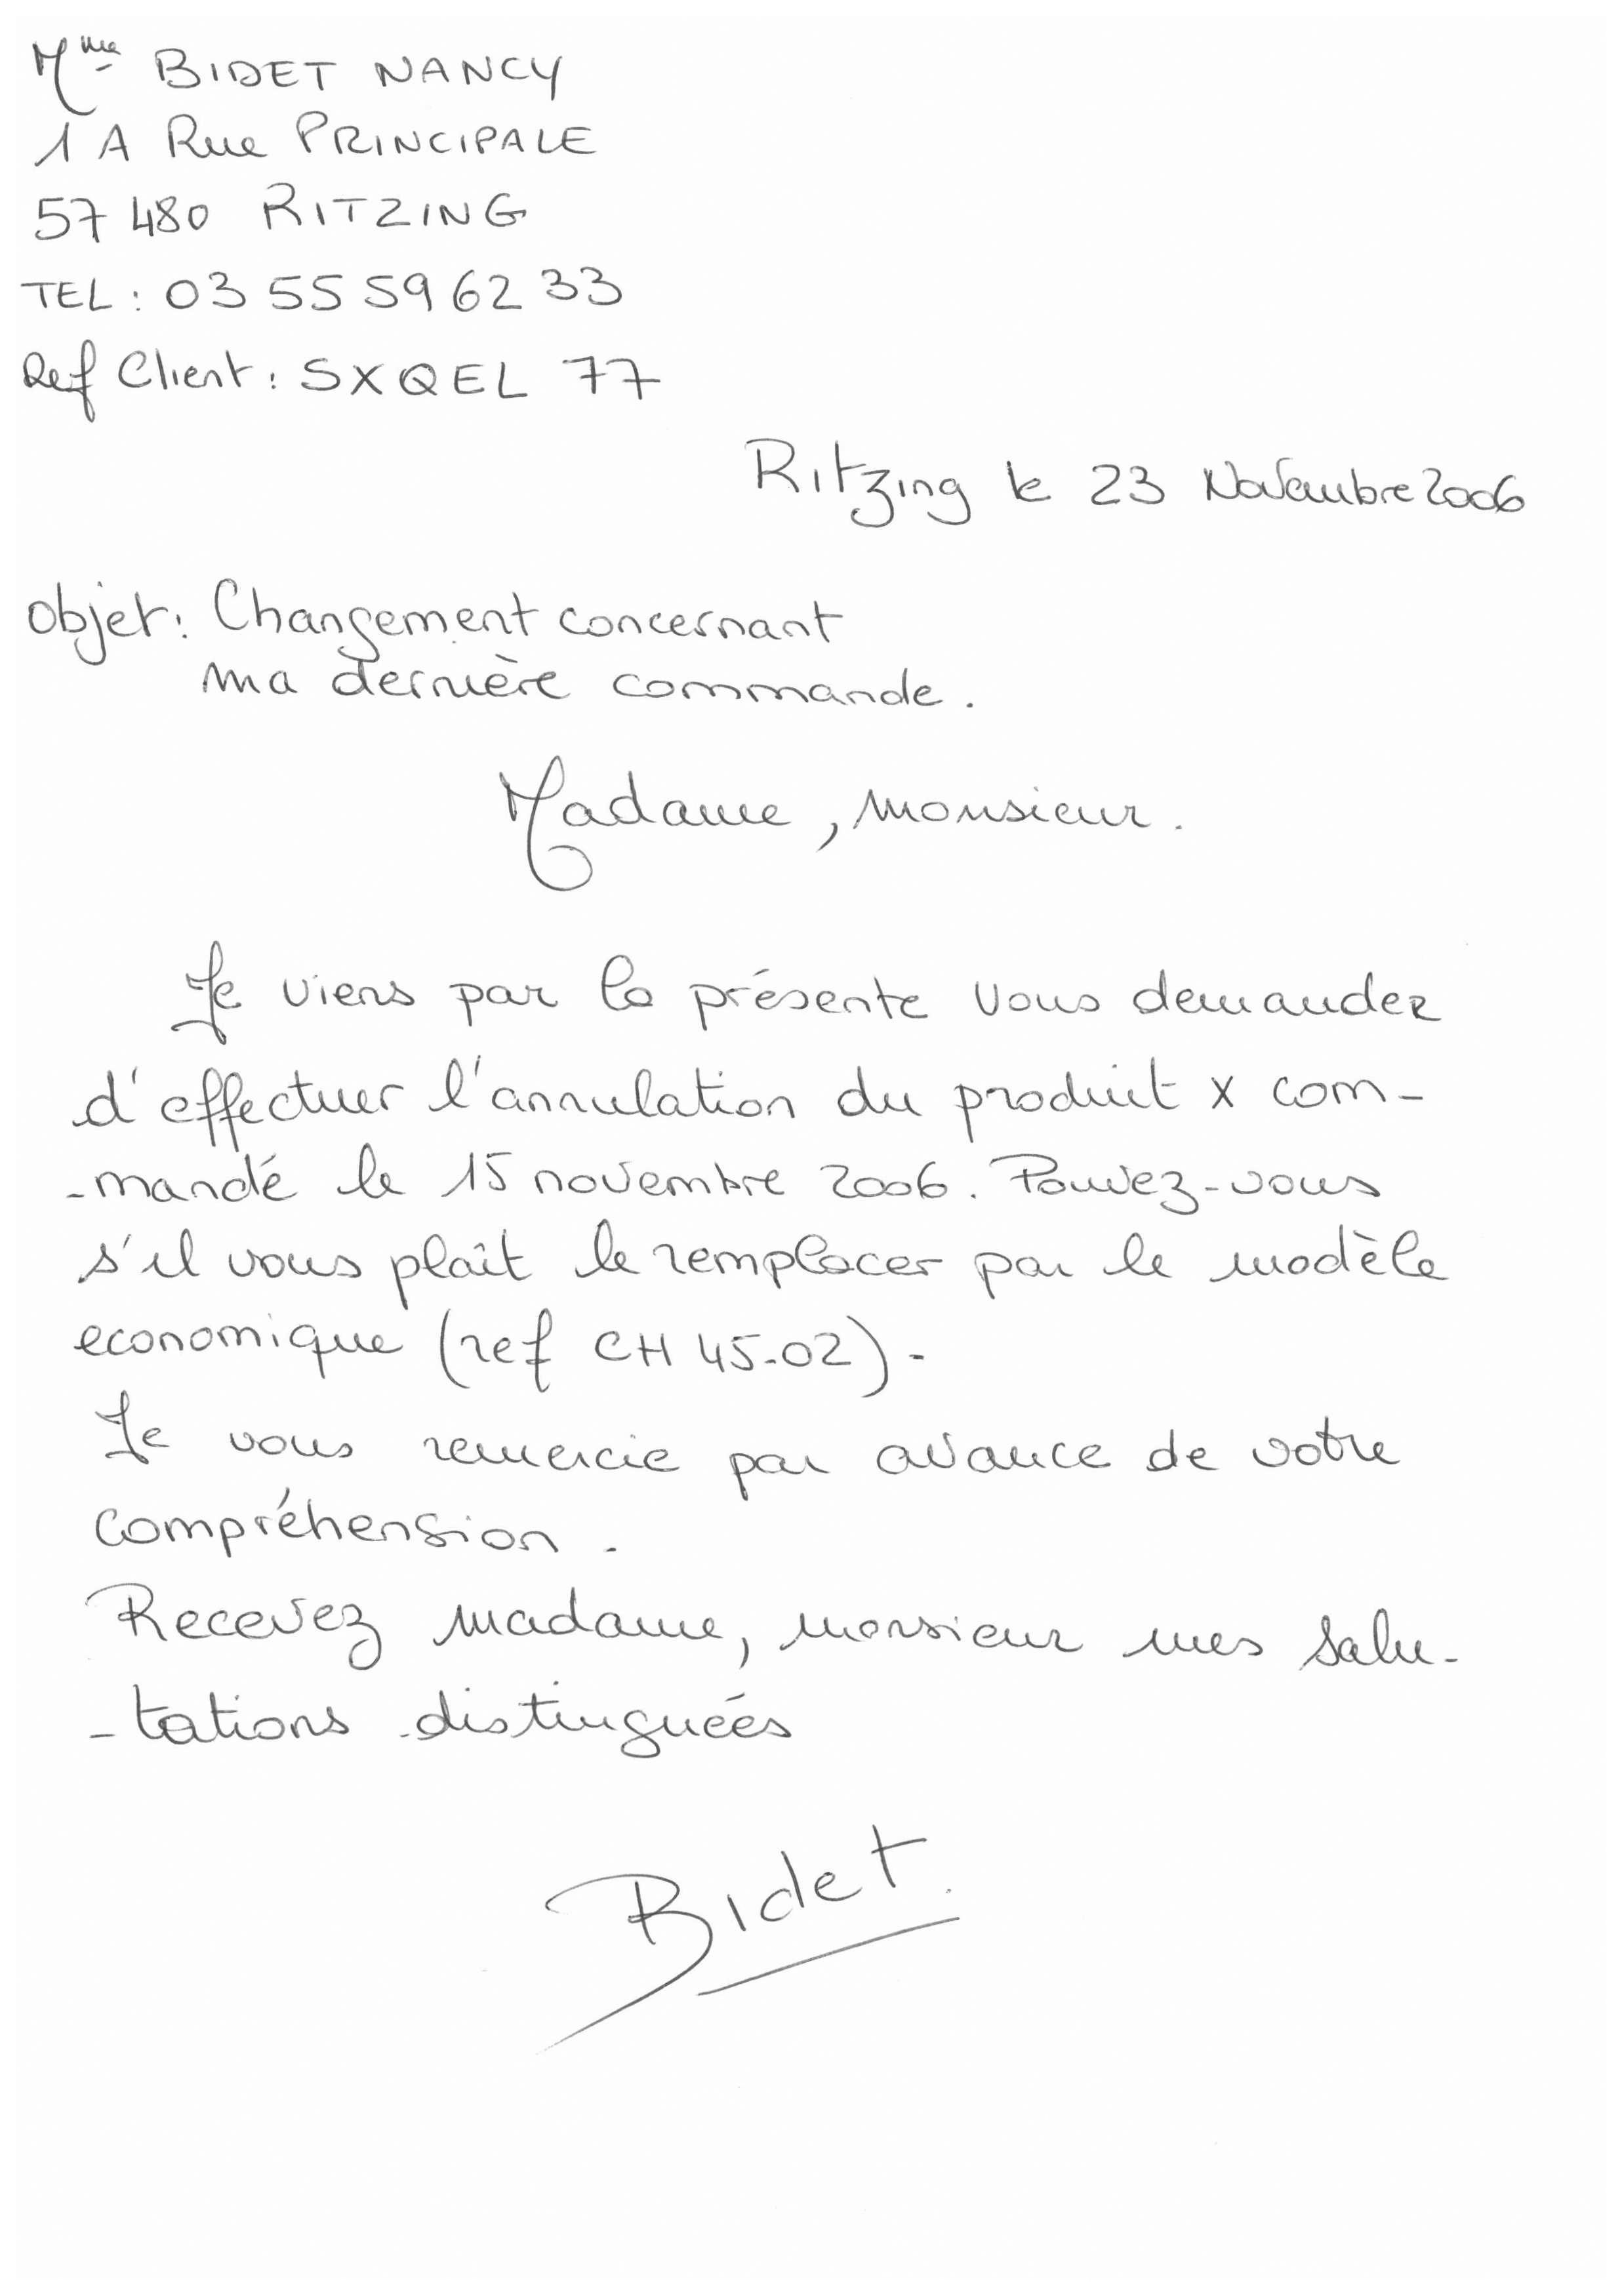 Mme BIDET NANCY
1 A Rue PRINCIPALE
57 480 RITZING
TEL : 03 55 59 62 33
Ref Client : SXQEL 77
Ritzing le 23 Novembre 2006
objet : Changement concernant
ma dernière commande.
Madame, Monsieur.
Je viens par la présente vous demander
d'effectuer l'annulation du produit x com-
-mandé le 15 novembre 2006. Pouvez-vous
s'il vous plaît le remplacer par le modèle
economique (ref CH 45-02).
Je vous remercie par avance de votre
compréhension.
Recevez madame, monsieur mes salu-
-tations distinguées
Bidet